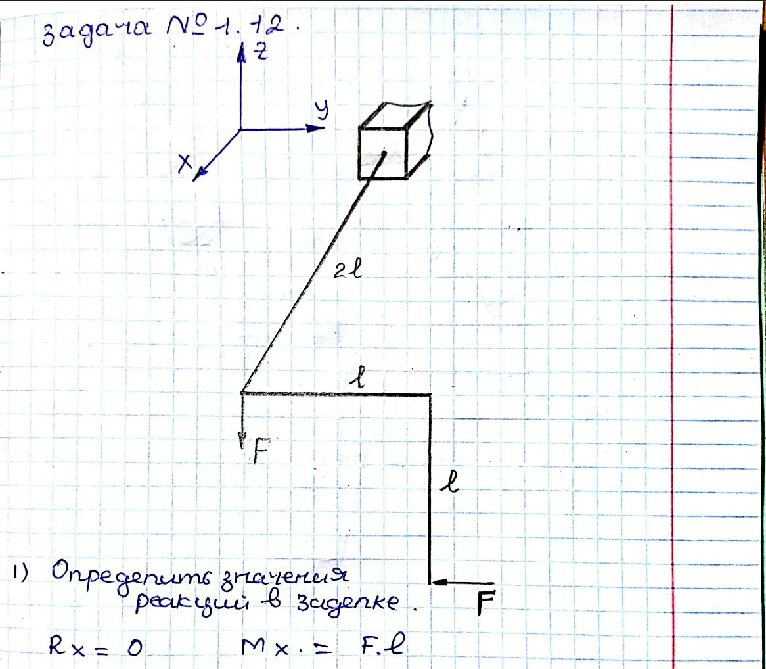 задача № 1.12.
z
y
x
2l
l
F
l
1) Определить значения
реакций в заделке.
F
Rx = 0 Mx. = F.l